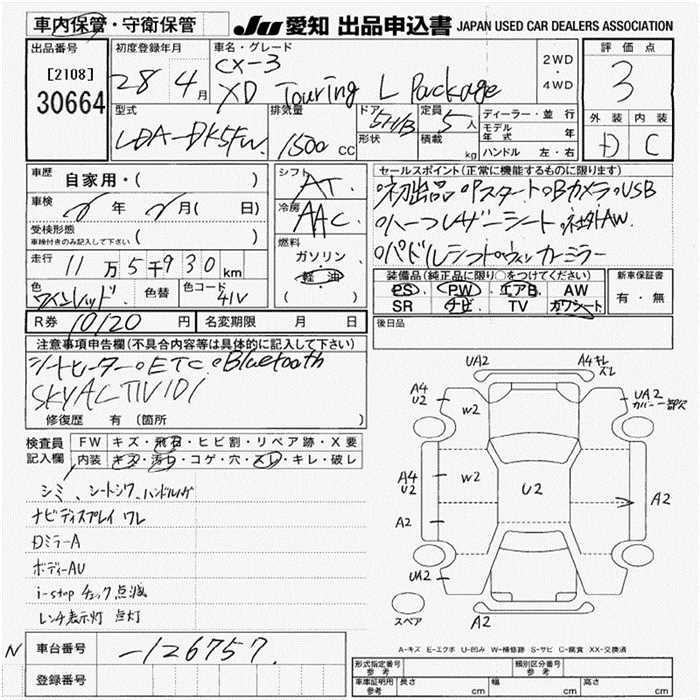 車内保管・守衛保管
JU 愛知 出品申込書 JAPAN USED CAR DEALERS ASSOCIATION
出品番号
[2108]
30664
初度登録年月
28 4月
車名・グレード
CX-3
XD Touring L Package
2WD
・
4WD
評価点
3
外装 内装
D C
型式
LDA-DK5FW
排気量
1500 cc
ドア 5H/B
形状
定員 5人
積載 kg
ディーラー・並行
モデル年式 年
ハンドル 左・右
車歴 自家用・( )
車検 年 月( 日)
受検形態
車検付きのみ記入して下さい ( )
走行 11万5千930km
色 ワインレッド 色替 色コード 41V
シフト AT
冷房 AAC
燃料
ガソリン
・
軽油
( )
セールスポイント(正常に機能するものに限ります)
○初出品○Pスタート○Bカメラ○USB
○ハーフレザーシート○社外AW
○パドルシフト○ウィンカーミラー
装備品(純正品に限り○をつけてください)
PS PW エアB AW
SR ナビ TV カワシート
新車保証書
有・無
R券 10120円 名変期限 月 日
後日品
注意事項申告欄(不具合内容等は具体的に記入して下さい)
シートヒーター○ETC○Bluetooth
SKYACTIV1D1
修復歴 有 (箇所 )
検査員記入欄
FW キズ・飛石・ヒビ割・リペア跡・X要
内装 キズ・汚れ・コゲ・穴・スレ・キレ・破レ
シミ、シートシワ、ハンドルハゲ
ナビディスプレイワレ
DミラーA
ボディーAU
i-stopチェック点滅
レンチ表示灯 点灯
UA2 A4キレ
ズレ
A4
U2
W2
UA2
カバー一部欠
A4
U2
W2
U2
A2
A2
UA2
スペア
A2
A-キズ E-エクボ U-凹ミ W-補修跡 S-サビ C-腐食 XX-交換済
N 車台番号 -126757
登録番号
形式指定番号
参考
類別区分番号
参考
車庫証明用
参考
長さ cm 幅 cm 高さ cm